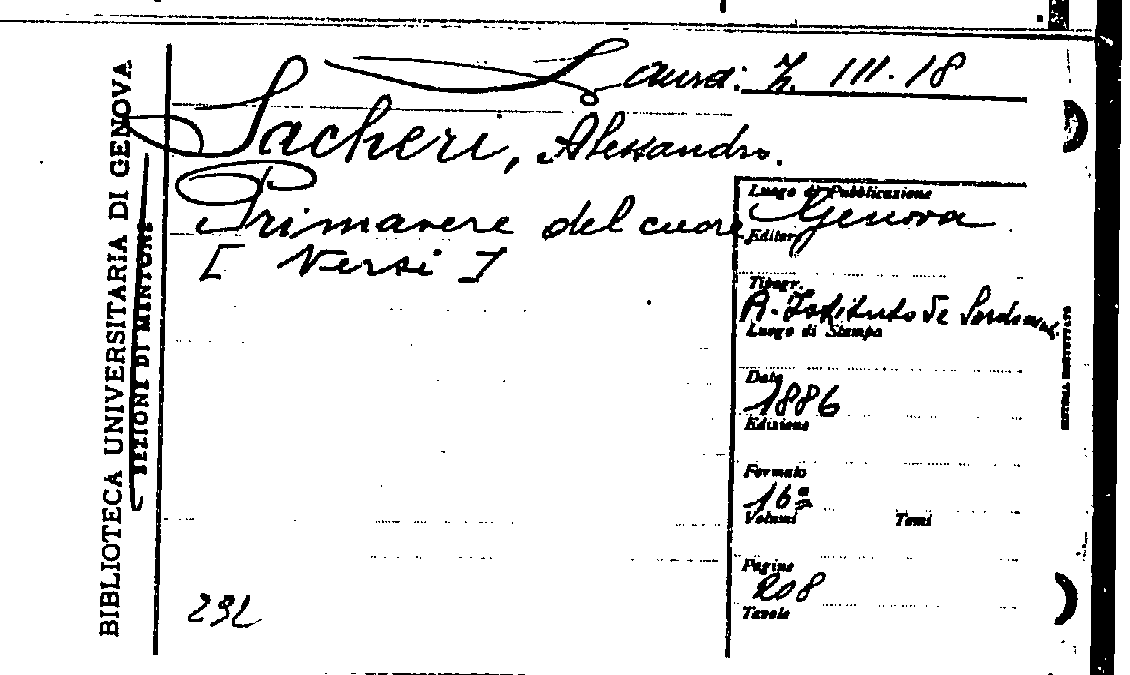 Laura: Z. III. 18
Sacheri, Alessandro.
Primavere del cuore
[ Versi ]
292
Luogo di Pubblicazione
Genova
Editore
Tipogr.
A. Istituto de Sordomuti
Luogo di Stampa
Data
1886
Edizione
Formato
16º
Volumi Tomi
Pagine
208
Tavole
BIBLIOTECA UNIVERSITARIA DI GENOVA
SEZIONE DI MENTONE